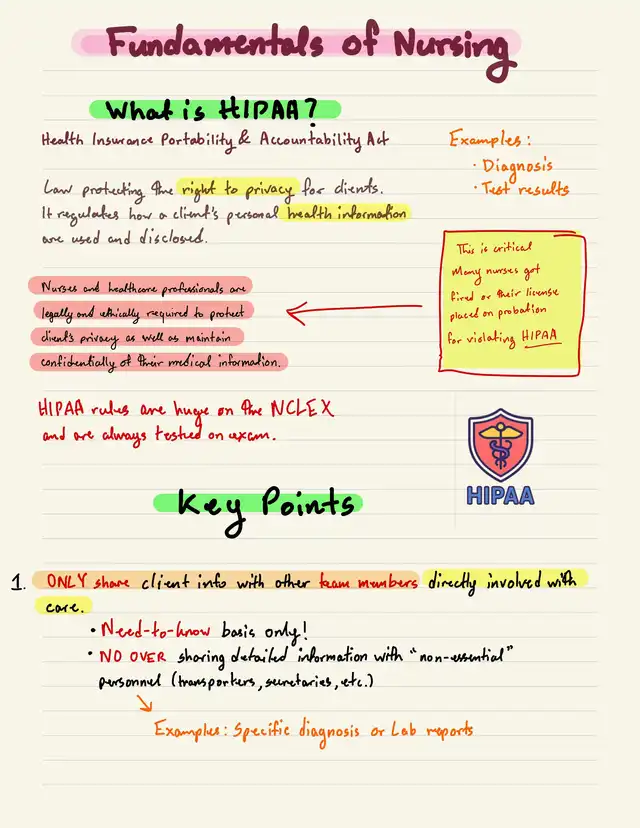 Fundamentals of Nursing
What is HIPAA?
Health Insurance Portability & Accountability Act
Examples:
• Diagnosis
• Test results
Law protecting the right to privacy for clients.
It regulates how a client's personal health information
are used and disclosed.
This is critical
Many nurses got
fired or their license
placed on probation
for violating HIPAA
Nurses and healthcare professionals are
legally and ethically required to protect
client's privacy as well as maintain
confidentially of their medical information.
HIPAA rules are huge on the NCLEX
and are always tested on exam.
HIPAA
Key Points
1. ONLY share client info with other team members directly involved with
care.
• Need-to-know basis only!
• NO OVER sharing detailed information with "non-essential"
personnel (transporters, secretaries, etc.)
Examples: Specific diagnosis or Lab reports